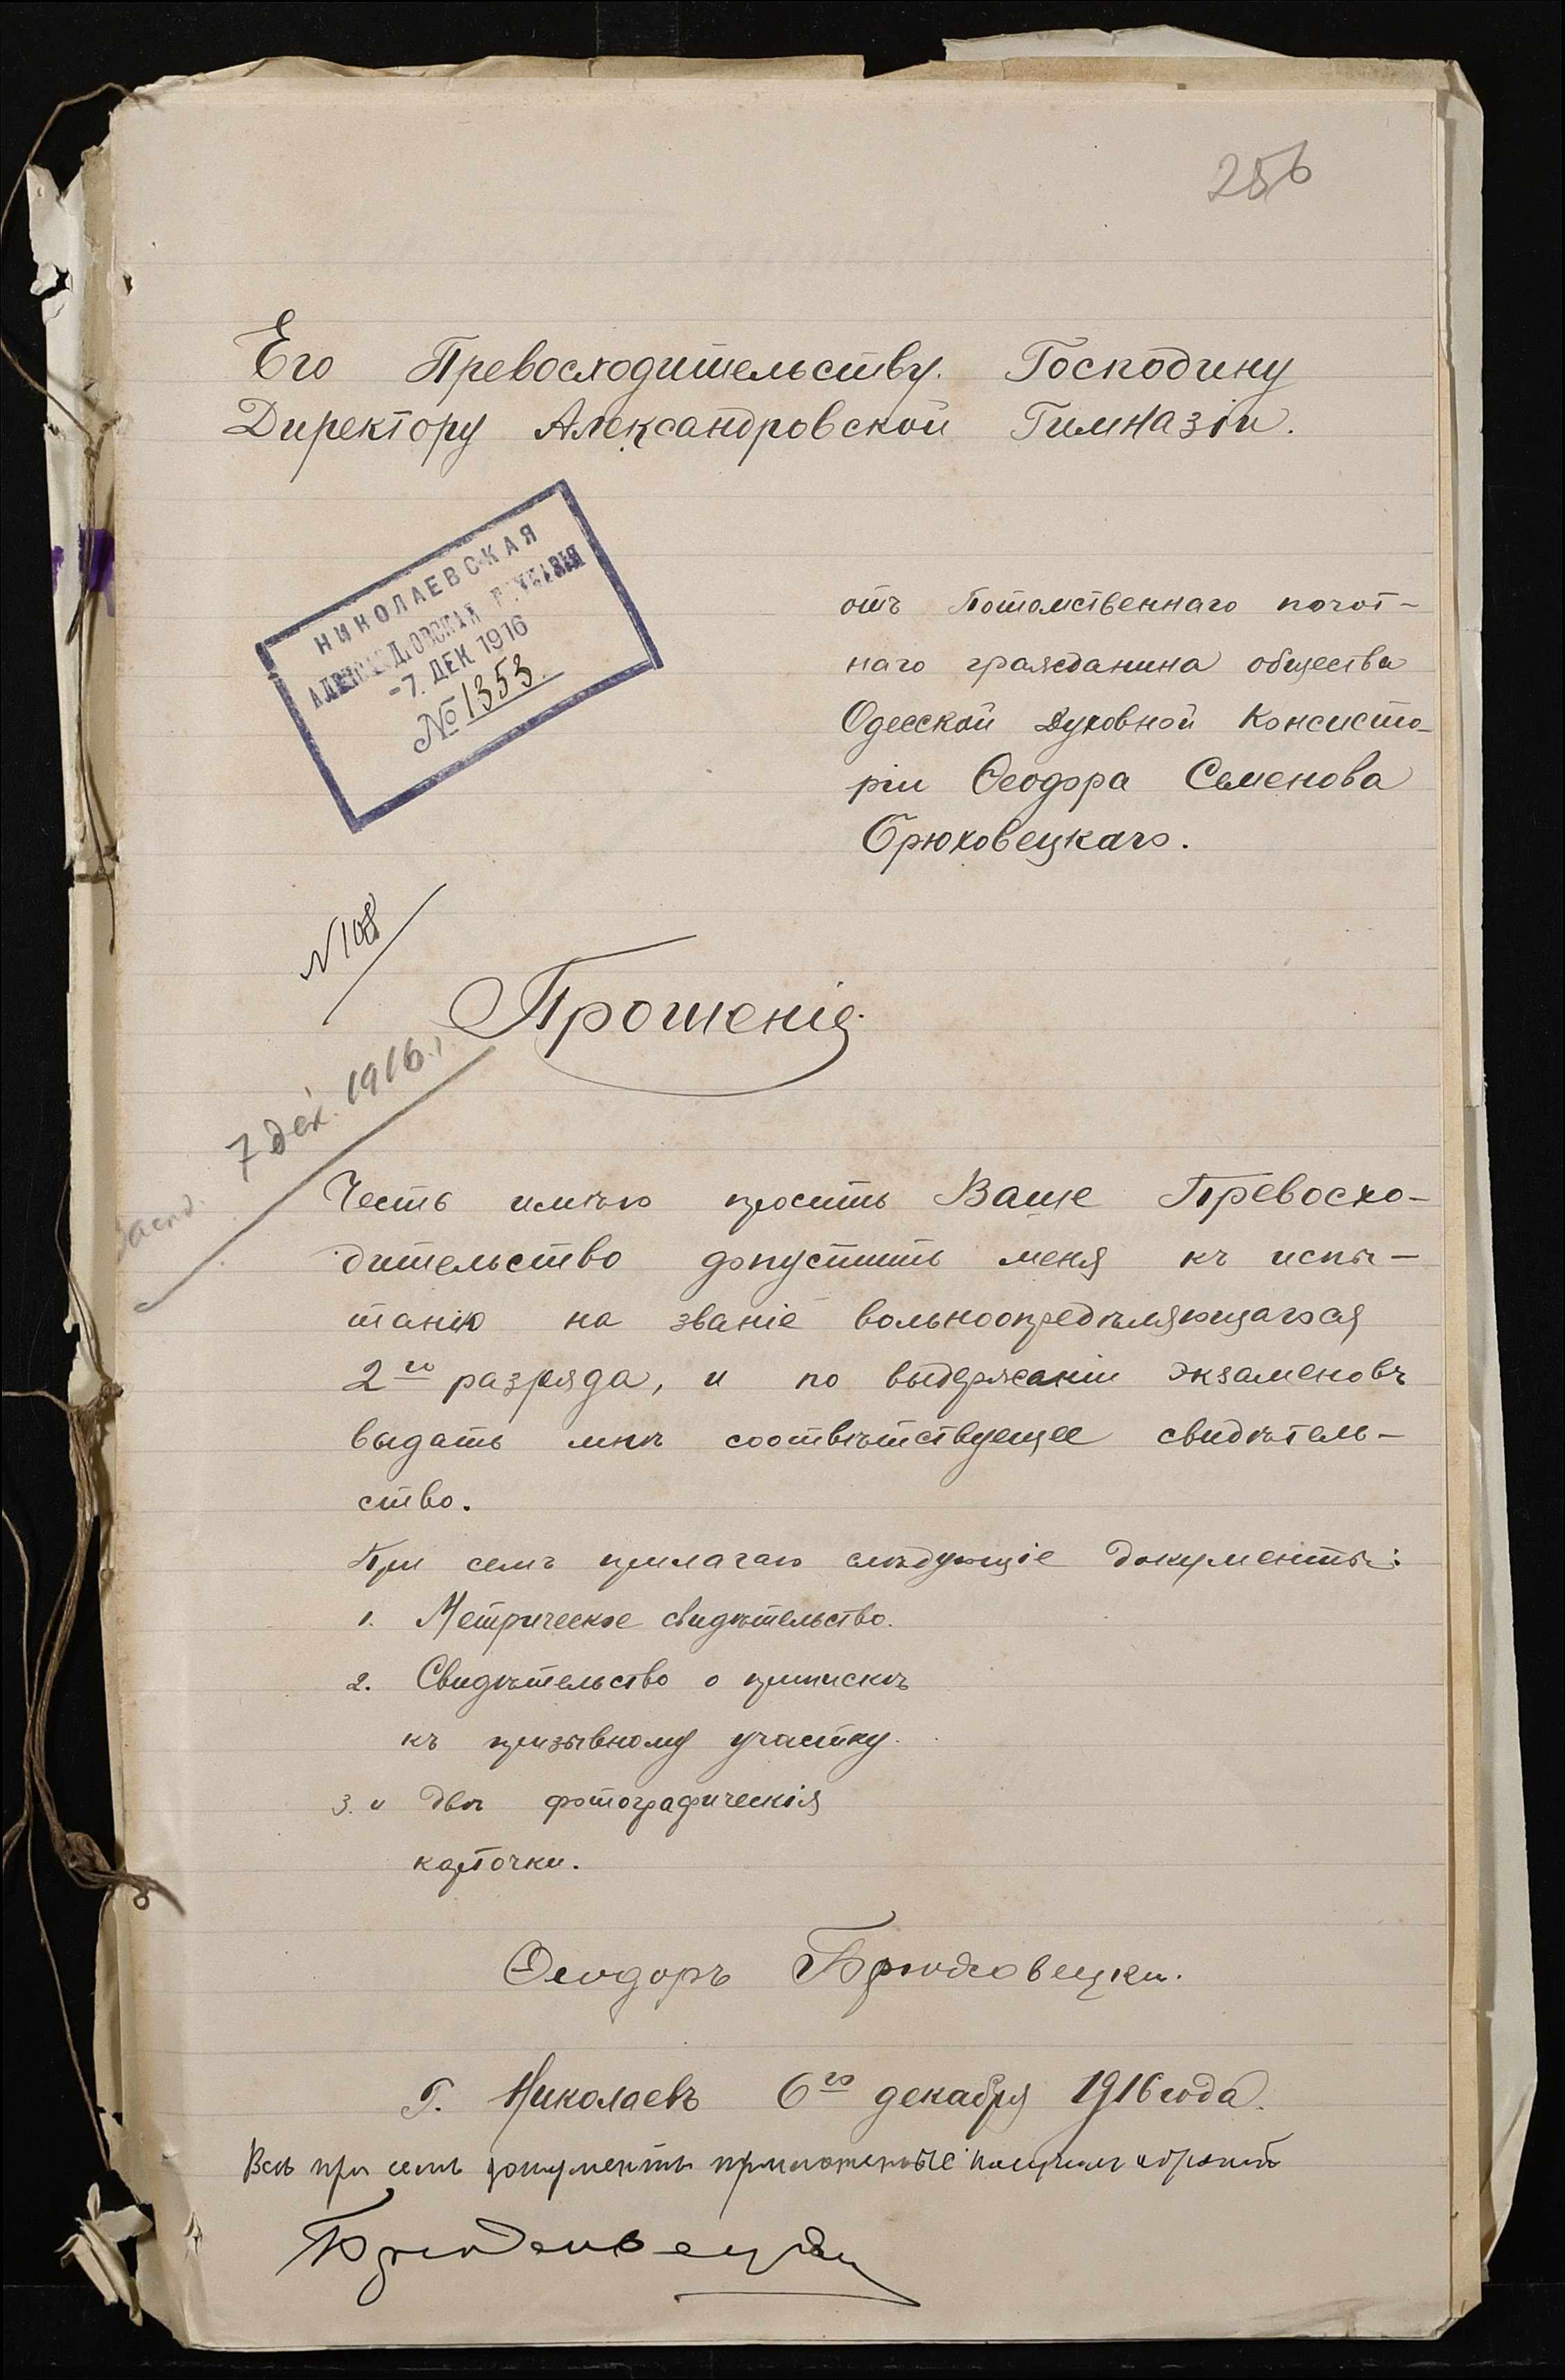 256
Его Превосходительству Господину
Директору Александровской Гимназіи.
НИКОЛАЕВСКАЯ
АЛЕКСАНДРОВСКАЯ ГИМНАЗІЯ
-7. ДЕК 1916
№ 1353.
отъ Потомственнаго почот-
наго гражданина общества
Одесской Духовной Консисто-
ріи Ѳеодора Семенова
Брюховецкаго.
N 108
Прошеніе.
7 дек. 1916.
Честь имѣю просить Ваше Превосхо-
дительство допустить меня къ испы-
танію на званіе вольноопредѣляющагося
2го разряда, и по выдержаніи экзаменовъ
выдать мнѣ соотвѣтствующее свидѣтель-
ство.
При семъ прилагаю слѣдующіе документы:
1. Метрическое свидѣтельство.
2. Свидѣтельство о припискѣ
къ призывному участку.
3. и двѣ фотографическія
карточки.
Ѳеодоръ Брюховецки.
Г. Николаевъ 6го декабря 1916 года.
Всѣ при семъ документы приложенные получилъ обратно
Брюховецки